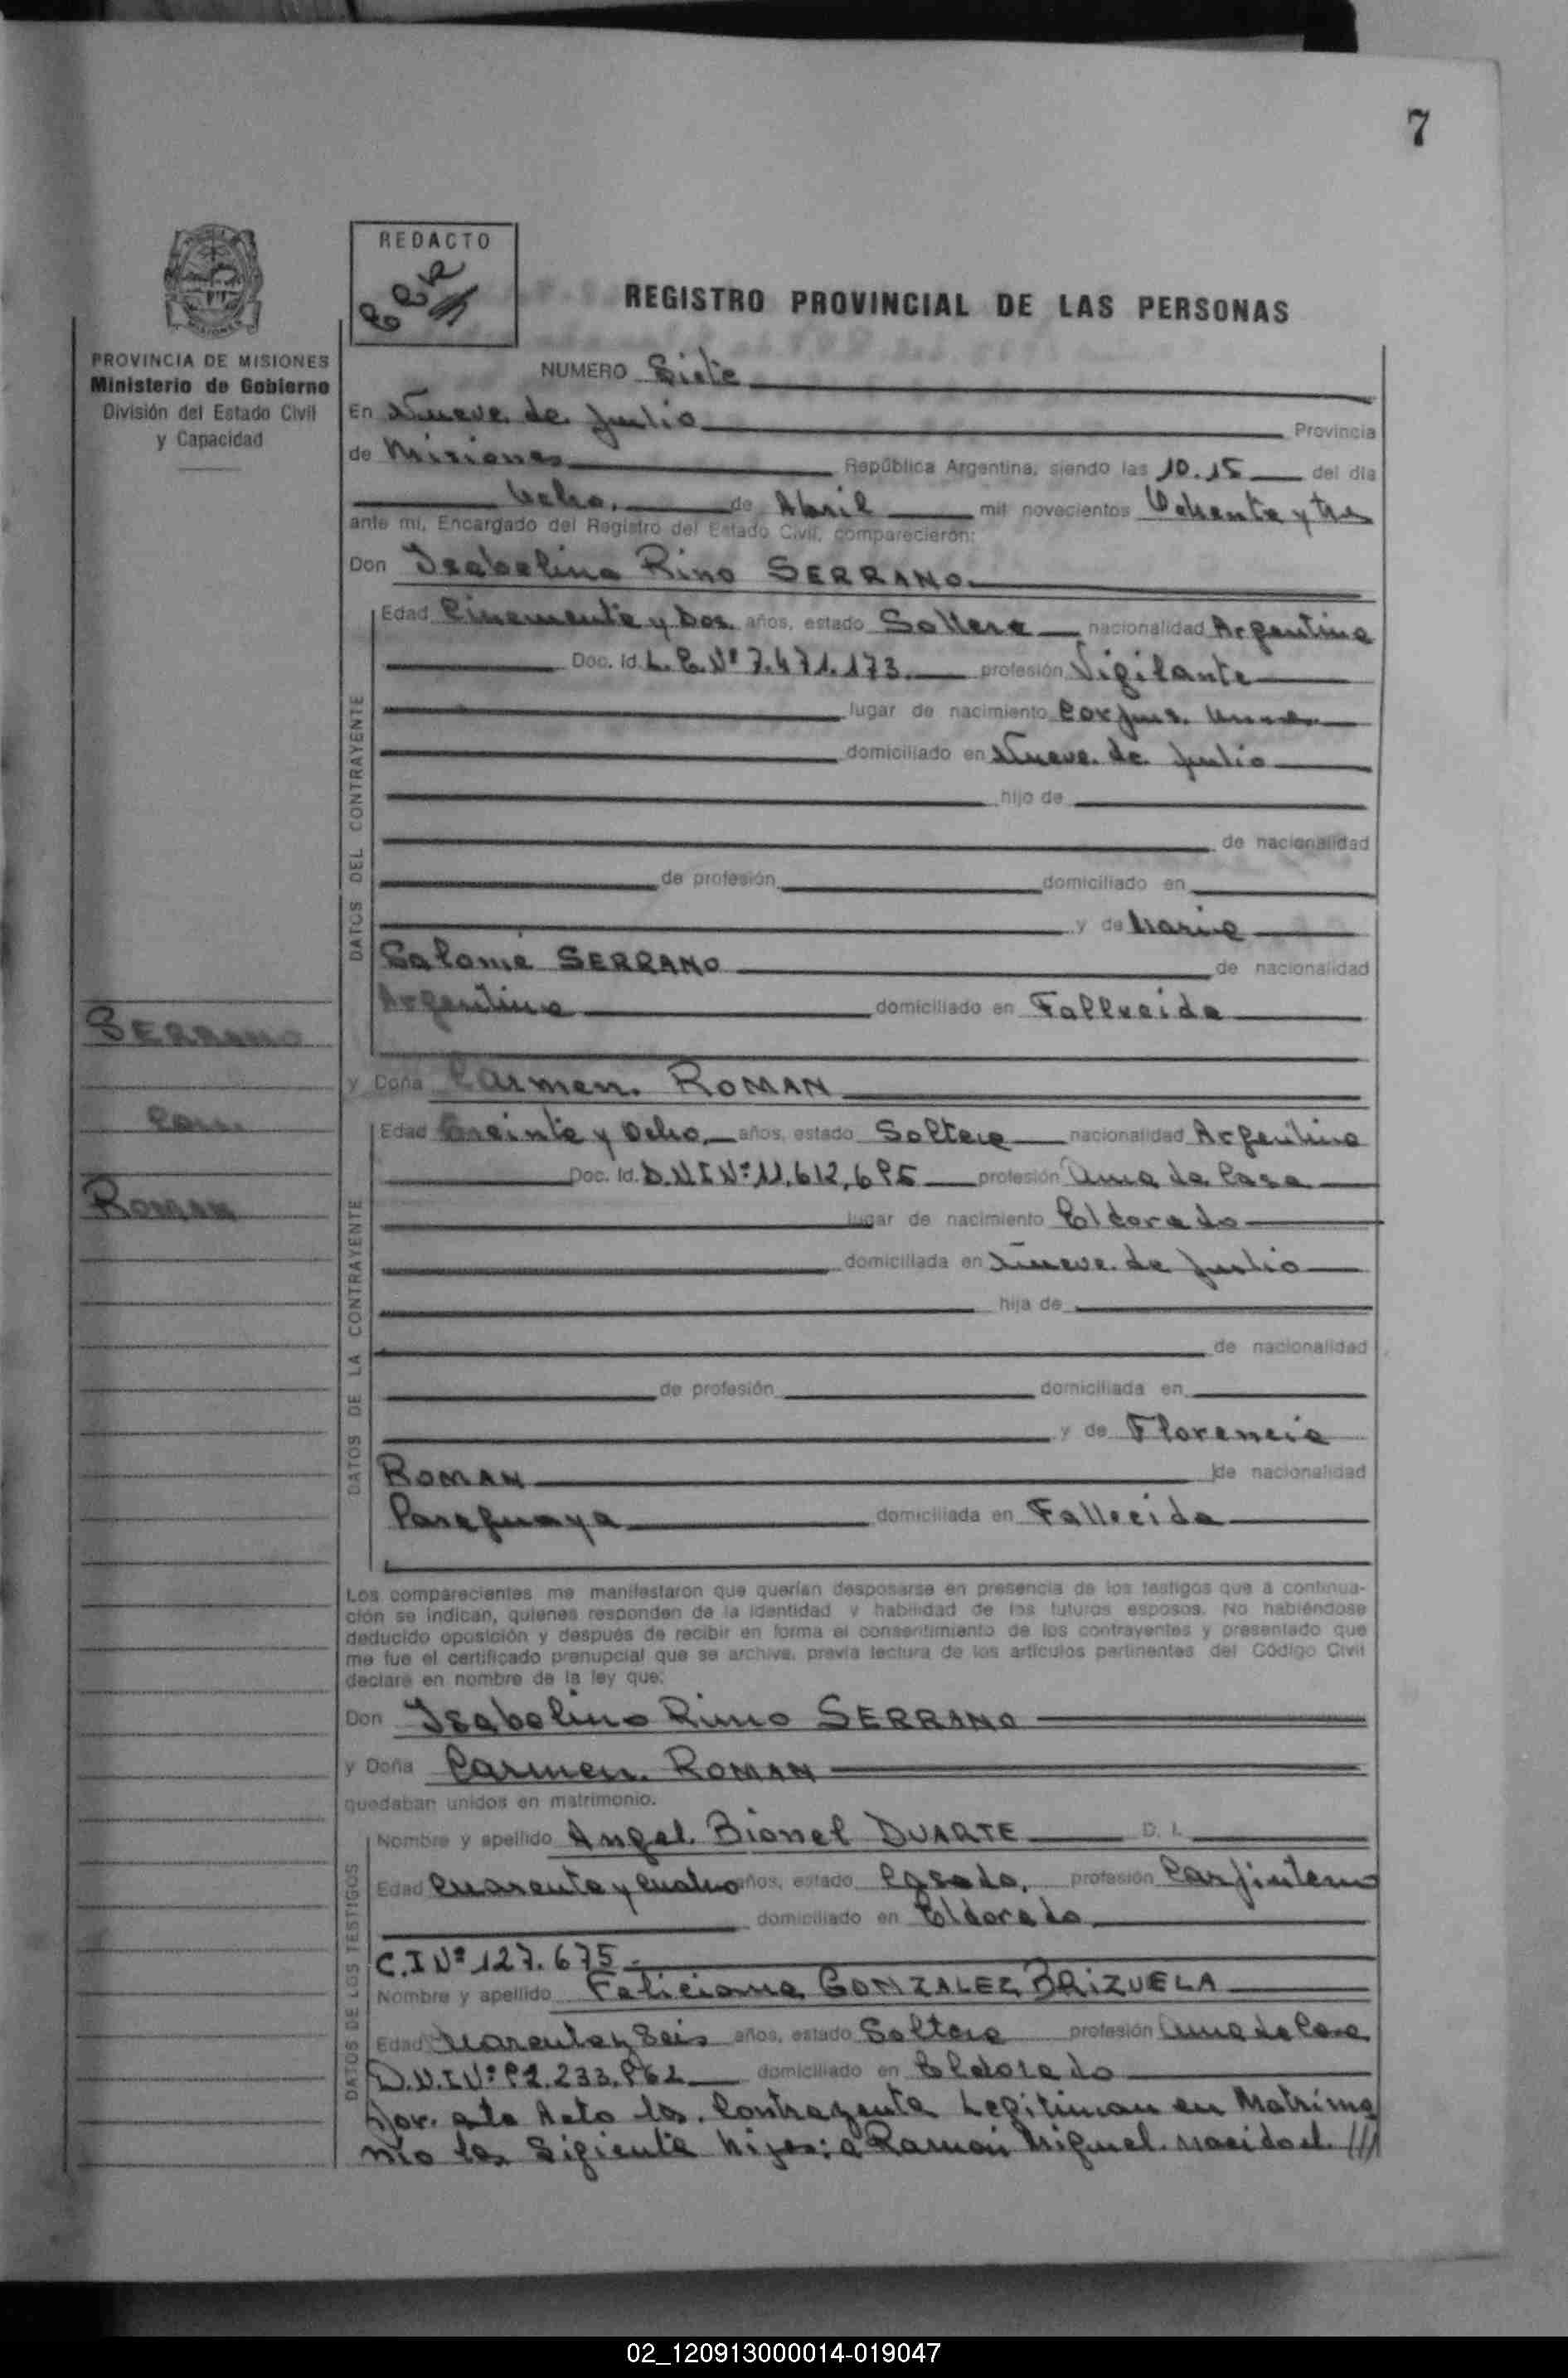 7
REDACTO
REGISTRO PROVINCIAL DE LAS PERSONAS
PROVINCIA DE MISIONES
Ministerio de Gobierno
División del Estado Civil
y Capacidad
NUMERO Siete
En Nueve de Julio Provincia
de Misiones República Argentina, siendo las 10.15 del día
Ocho, de Abril mil novecientos Ochenta y tres
ante mí, Encargado del Registro del Estado Civil, comparecieron:
Don Isabelino Rino SERRANO
Edad Cincuenta y Dos años, estado Soltero nacionalidad Argentino
Doc. Id. L.E. Nº 7.471.173. profesión Vigilante
lugar de nacimiento Corpus.
domiciliado en Nueve de Julio
hijo de
de nacionalidad
de profesión domiciliado en
y de María
Salomé SERRANO de nacionalidad
Argentina domiciliado en Fallecida
DATOS DEL CONTRAYENTE
SERRANO
con
ROMAN
y Doña Carmen. ROMAN
Edad Treinta y Ocho, años, estado Soltera nacionalidad Argentina
Doc. Id. D.N.I Nº 11.612.695 profesión Ama de Casa
lugar de nacimiento Eldorado
domiciliada en Nueve de Julio
hija de
de nacionalidad
de profesión domiciliada en
y de Florencia
ROMAN de nacionalidad
Paraguaya domiciliada en Fallecida
DATOS DE LA CONTRAYENTE
Los comparecientes me manifestaron que querían desposarse en presencia de los testigos que a continua-
ción se indican, quienes responden de la identidad y habilidad de los futuros esposos. No habiéndose
deducido oposición y después de recibir en forma el consentimiento de los contrayentes y presentado que
me fue el certificado prenupcial que se archiva, previa lectura de los artículos pertinentes del Código Civil
declaré en nombre de la ley que:
Don Isabelino Rino SERRANO
y Doña Carmen. ROMAN
quedaban unidos en matrimonio.
Nombre y apellido Angel Bionel DUARTE D. I.
Edad Cuarenta y Cuatro años, estado Casado, profesión Carpintero
domiciliado en Eldorado
C.I Nº 127.675.-
Nombre y apellido Feliciana GONZALEZ BRIZUELA
Edad Cuarenta y Seis años, estado Soltera profesión Ama de Casa
D.N.I Nº 92.233.962 domiciliado en Eldorado
DATOS DE LOS TESTIGOS
Por. este Acto los. Contrayente Legitiman en Matrimo
nio los Sigiente hijos: a Ramón Miguel. nacido el. ///
02_120913000014-019047